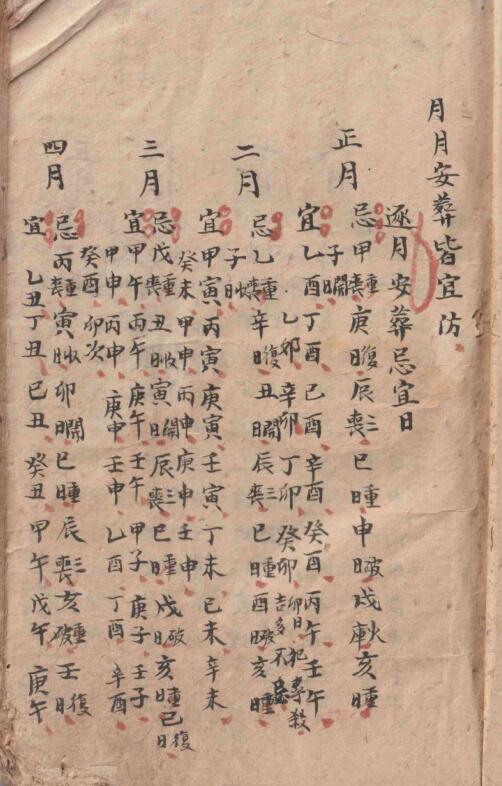 月月安葬皆宜防
逐月安葬忌宜日
正月
忌甲重喪庚復日辰三喪巳重日申破日戌火庫亥重
子開日
宜乙酉丁酉己酉辛酉癸酉丙午壬午
乙卯辛卯丁卯癸卯卯日犯專殺吉多不忌
二月
忌乙重喪辛復日丑開日辰三喪巳重日酉破日亥重
子日
宜甲寅丙寅庚寅壬寅丁未己未辛未
癸未甲申丙申庚申壬申
三月
忌戊重喪丑破日寅開日辰三喪巳重日戌破日亥重日己復日
宜甲午丙午庚午壬午甲子庚子壬子
甲申丙申庚申壬申乙酉丁酉辛酉
癸酉卯次
四月
忌丙重喪寅日卯開日巳重日辰三喪亥重破壬復日
宜乙丑丁丑己丑癸丑甲午戊午庚午